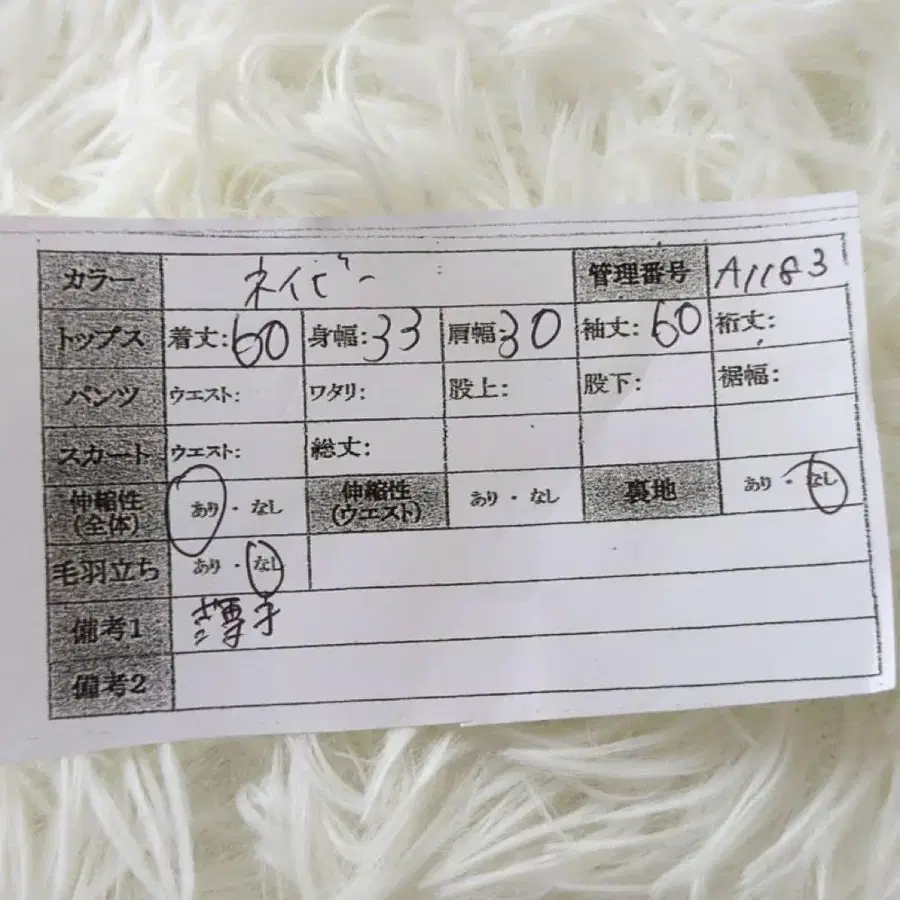 カラー ネイビー 管理番号 A1183
トップス 着丈:60 身幅:33 肩幅:30 袖丈:60 裄丈:
パンツ ウエスト: ワタリ: 股上: 股下: 裾幅:
スカート ウエスト: 総丈:
伸縮性(全体) あり・なし 伸縮性(ウエスト) あり・なし 裏地 あり・なし
毛羽立ち あり・なし
備考1
備考2